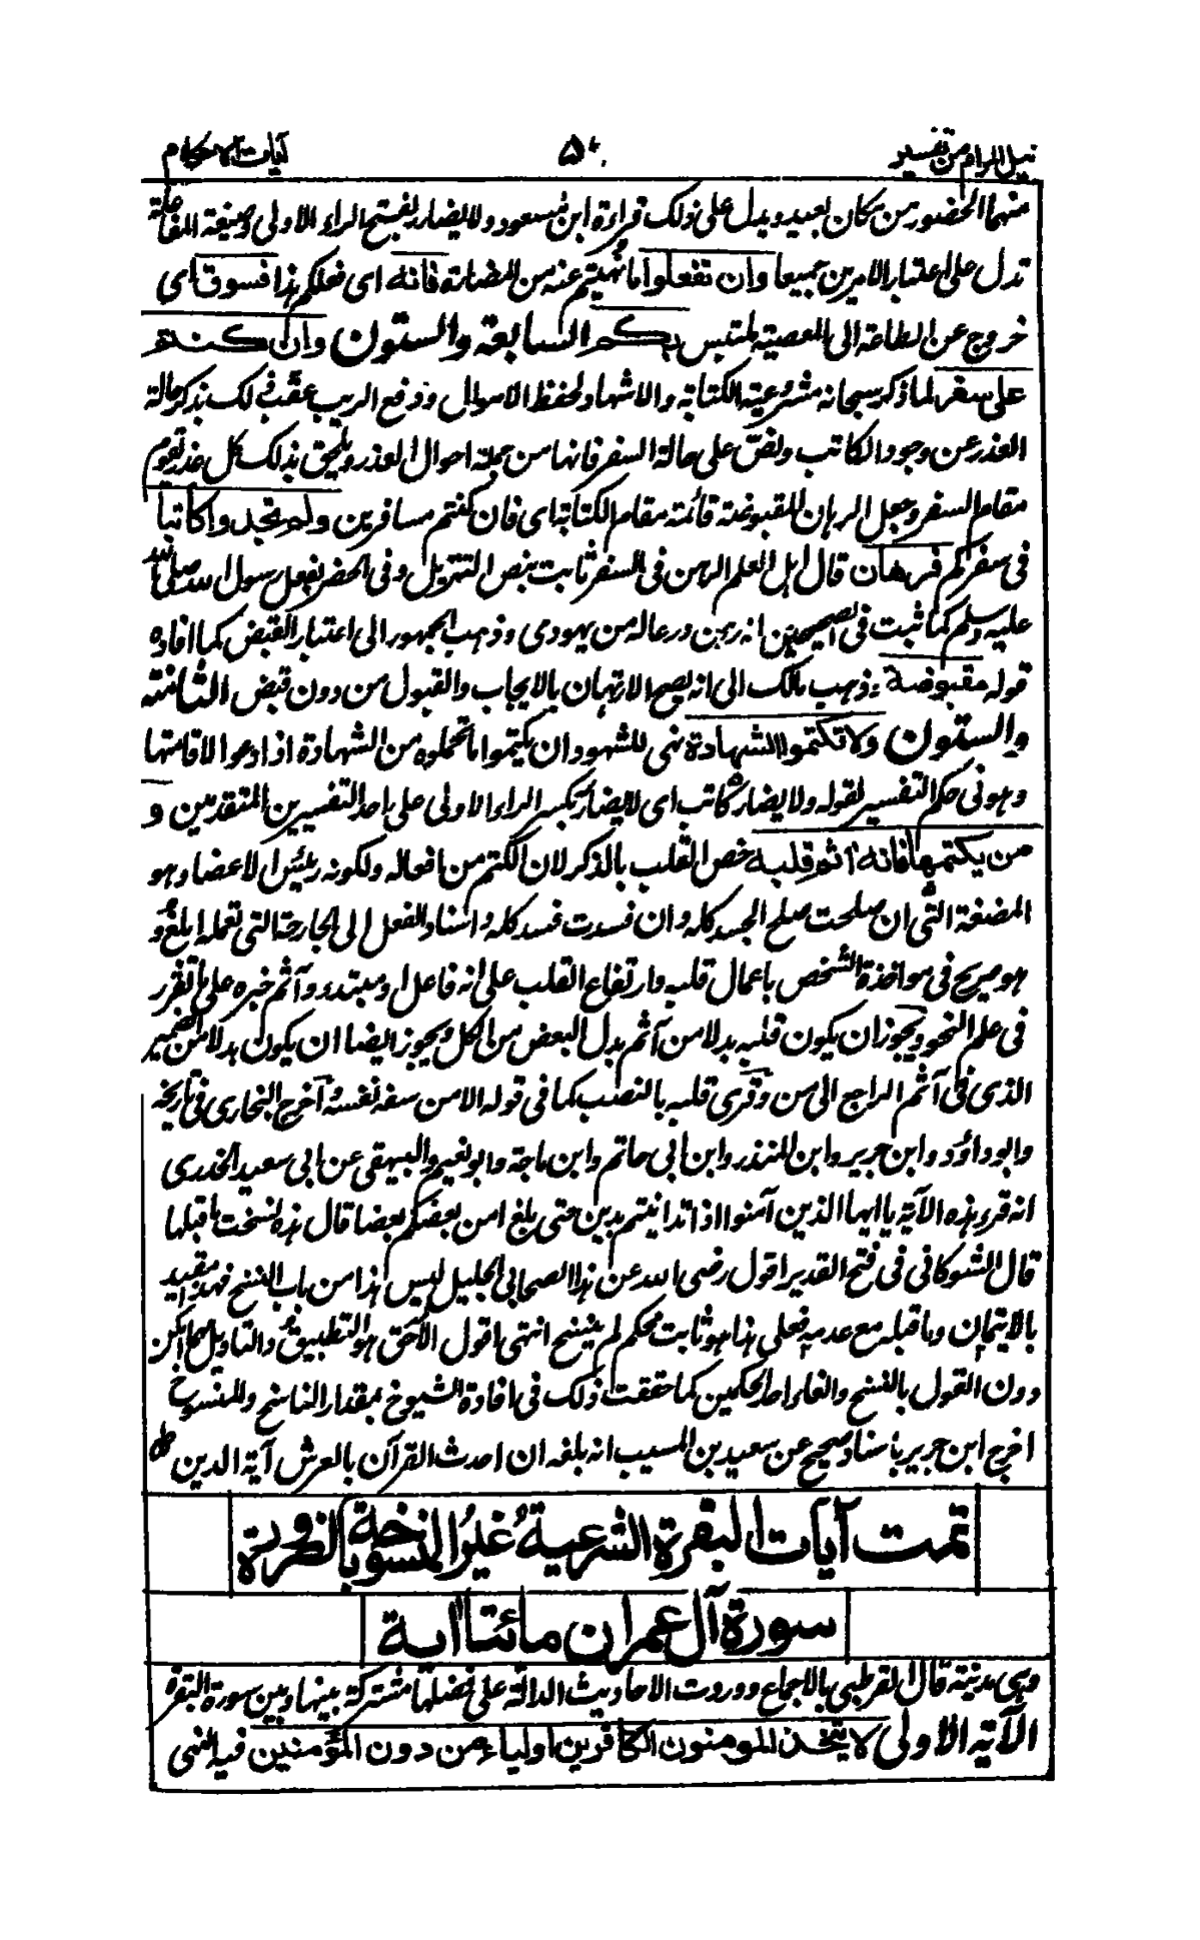 نيل المرام من تفسير ۵۰ آيات الاحكام
منهما الحضور من مكان بعيد ويدل على ذلك قراءة ابن مسعود ولا يضارر بفتح الراء الاولى وصيغة المفاعلة
تدل على اعتبار الامرين جميعا وان تفعلوا ما نهيتم عنه من المضارة فانه اى فعلكم هذا فسوق اى
خروج عن الطاعة الى المعصية ملتبس بكم السابعة والستون وان كنتم
على سفر لما ذكر سبحانه مشروعية الكتابة والاشهاد لحفظ الاموال ودفع الريب عقب ذلك بذكر حالة
العذر عن وجود الكاتب ونص على حالة السفر فانها من جملة احوال العذر ويلحق بذلك كل عذر يقوم
مقام السفر وجعل الرهان المقبوضة قائمة مقام الكتابة اى فان كنتم مسافرين ولم تجدوا كاتبا
فى سفركم فرهان قال اهل العلم الرهن فى السفر ثابت بنص التنزيل وفى الحضر بفعل رسول الله صلى الله
عليه وسلم كما ثبت فى الصحيحين انه رهن درعا له من يهودى وذهب الجمهور الى اعتبار القبض كما افاده
قوله مقبوضة وذهب مالك الى انه يصح الارتهان بالايجاب والقبول من دون قبض الثامنة
والستون ولا تكتموا الشهادة نهى للشهود ان يكتموا ما تحملوه من الشهادة اذا دعوا لاقامتها
وهو فى حكم التفسير لقوله ولا يضار كاتب اى لا يضارر بكسر الراء الاولى على احد التفسيرين المتقدمين و
من يكتمها فانه اثم قلبه خص القلب بالذكر لان الكتم من افعاله ولكونه رئيس الاعضا وهو
المضغة التى ان صلحت صلح الجسد كله وان فسدت فسد كله واسناد الفعل الى الجارحة التى تعمله ابلغ و
هو صريح فى مواخذة الشخص باعمال قلبه وارتفاع القلب على انه فاعل او مبتدء وآثم خبره على ما تقرر
فى علم النحو ويجوز ان يكون قلبه بدلا من آثم بدل البعض من الكل ويجوز ايضا ان يكون بدلا من الضمير
الذى فى آثم الراجع الى من وقرى قلبه بالنصب كما فى قوله الا من سفه نفسه اخرج البخارى فى تاريخه
وابو داؤد وابن جرير وابن المنذر وابن ابى حاتم وابن ماجة وابو نعيم والبيهقى عن ابى سعيد الخدرى
انه قرء هذه الآية يا ايها الذين آمنوا اذا تداينتم بدين حتى بلغ امن بعضكم بعضا قال هذه نسخت ما قبلها
قال الشوكانى فى فتح القدير اقول رضى الله عن هذا الصحابى الجليل ليس هذا من باب النسخ فهذا مقيد
بالايتمان وما قبله مع عدمه فعلى هذا هو ثابت محكم لم ينسخ انتهى اقول الاحق هو التطبيق والتاويل مهما امكن
دون القول بالنسخ والغاء احد الحكمين كما حققت ذلك فى افادة الشيوخ بمقدار الناسخ والمنسوخ
اخرج ابن جرير باسناد صحيح عن سعيد بن المسيب انه بلغه ان احدث القرآن بالعرش آية الدين
تمت آيات البقرة الشرعية غير المنسوخة بالضرورة
سورة آل عمران مائتا اية
وهى مدنية قال القرطبى بالاجماع ووردت الاحاديث الدالة على فضلها مشتركة بينها وبين سورة البقرة
الآية الاولى لا يتخذ المومنون الكافرين اولياء من دون المؤمنين فيه النهى